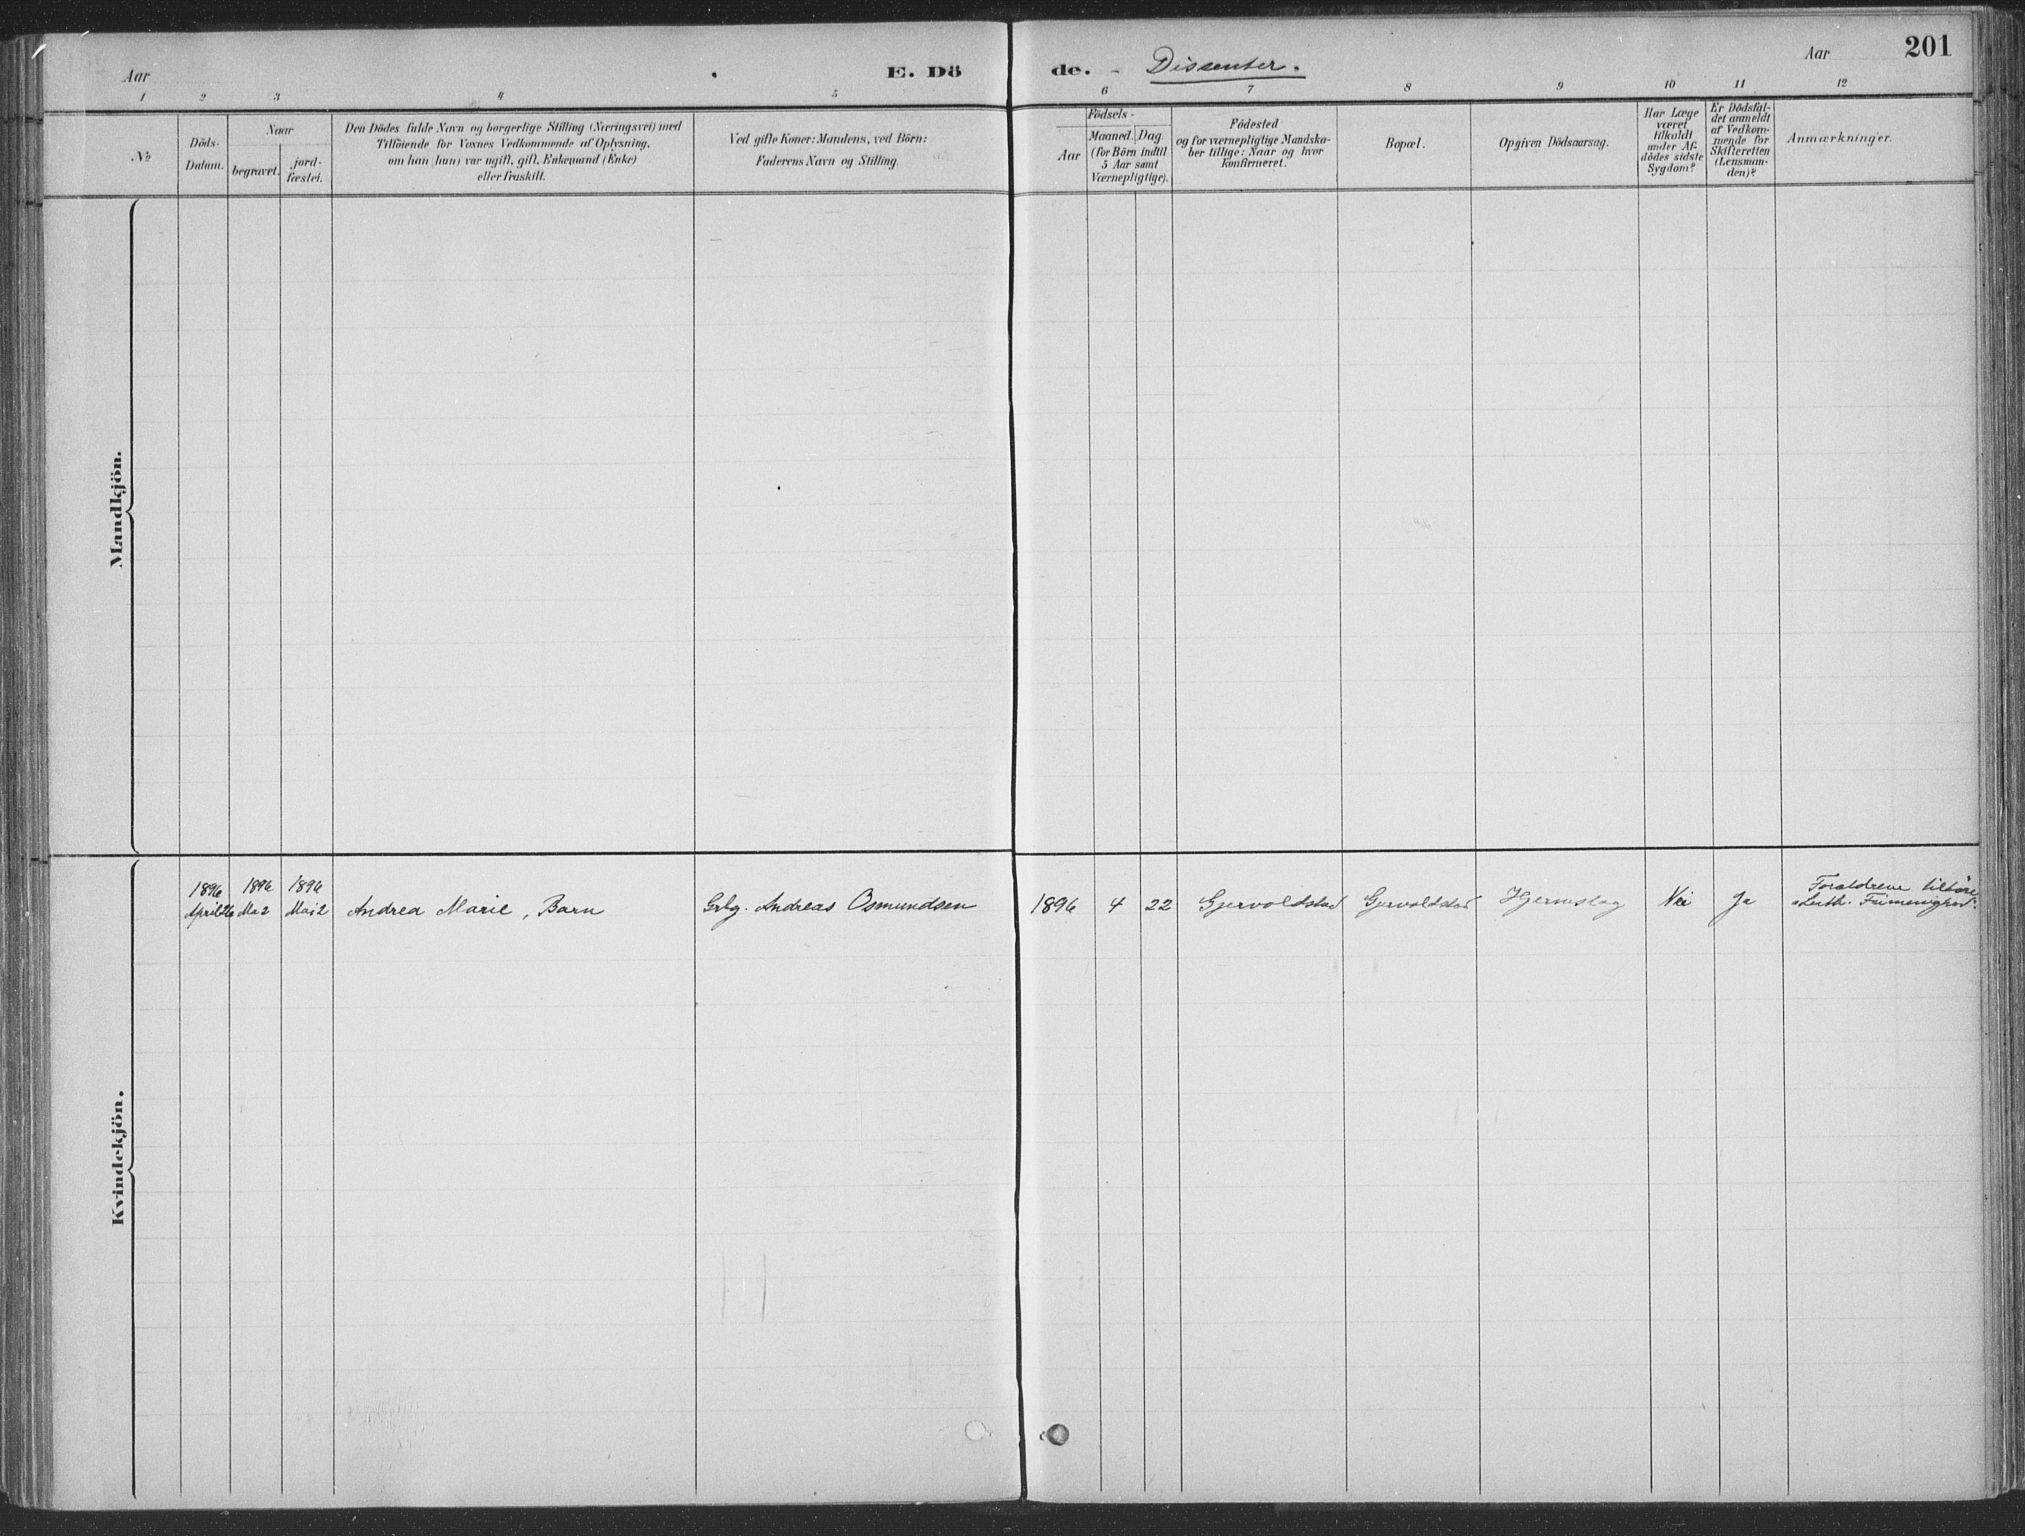 Aar
E. Dö
de. - Dissenter.
Aar
201
1 2 3 4 5 6 7 8 9 10 11 12
No
Döds-
Datum.
Naar
begravet.
jord-
fæstet.
Den Dödes fulde Navn og borgerlige Stilling (Næringsvei) med
Tilföiende for Voxnes Vedkommende af Oplysning,
om han (hun) var ugift, gift, Enkemand (Enke)
eller fraskilt.
Ved gifte Koner: Mandens, ved Börn:
Faderens Navn og Stilling.
Födsels-
Aar
Maaned. Dag.
(for Börn indtil
5 Aar samt
Værnepligtige).
Födested
og for værnepligtige Mandska-
ber tillige: Naar og hvor
konfirmeret.
Bopæl.
Opgiven Dödsaarsag.
Har Læge
været
tilkaldt
under Af-
dödes sidste
Sygdom?
Er Dödsfal-
det anmeldt
af Vedkom-
mende for
Skifteretten
(Lensman-
den)?
Anmærkninger.
Mandkjön.
Kvindekjön.
1896 1896 1896
April 26 Mai 2 Mai 2 Andrea Marie, Barn Grbg. Andreas Osmundsen 1896 4 22 Gjervoldstad Gjervoldstad Hjernslag Nei Ja
Forældrene tilhöre
Luth. Frimenighed.